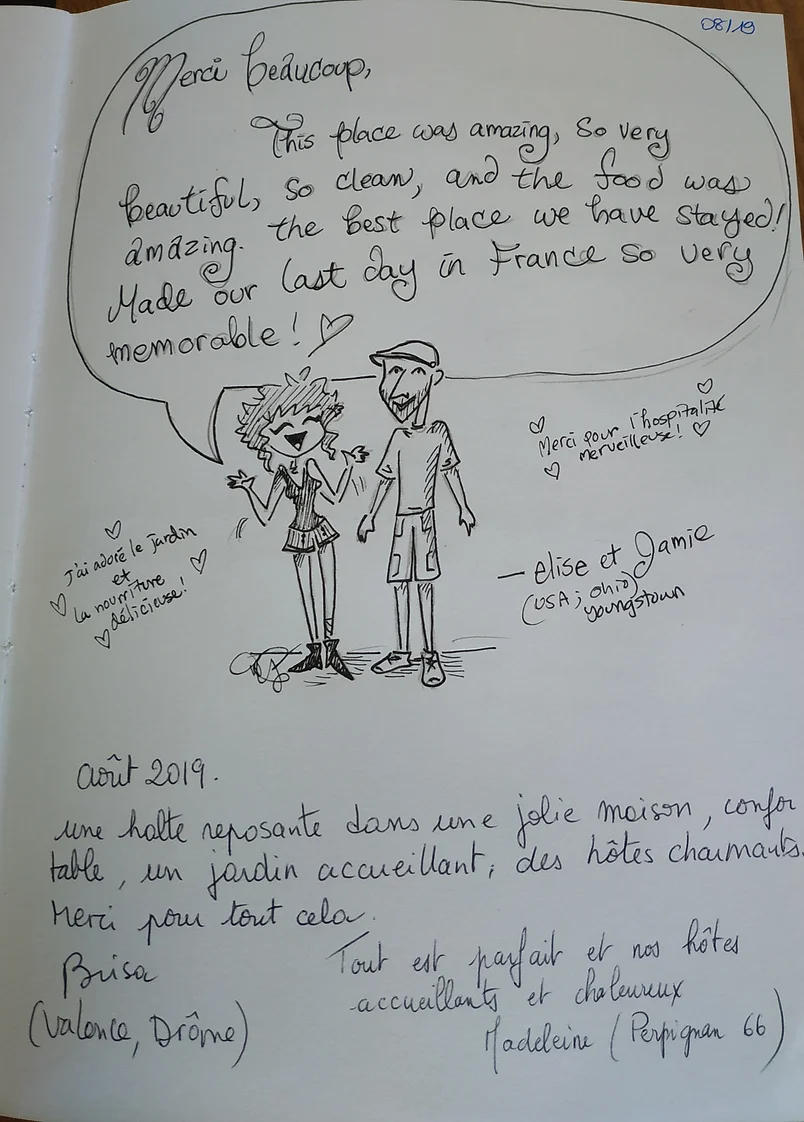 08/19
Merci beaucoup,
This place was amazing, so very
beautiful, so clean, and the food was
amazing. the best place we have stayed!
Made our last day in France so very
memorable!
Merci pour l'hospitalité
merveilleuse!
J'ai adoré le jardin
et
la nourriture
délicieuse!
— elise et Jamie
(USA; ohio)
youngstown
août 2019.
une halte reposante dans une jolie maison, confor
table, un jardin accueillant, des hôtes charmants.
Merci pour tout cela.
Brisa
(Valence, Drôme)
Tout est parfait et nos hôtes
accueillants et chaleureux
Madeleine (Perpignan 66)